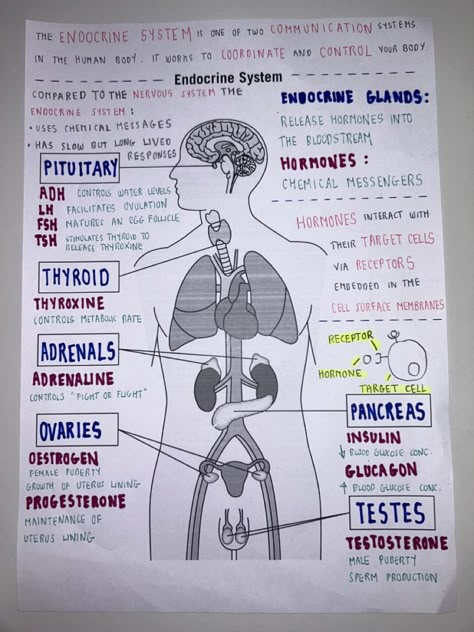 THE ENDOCRINE SYSTEM IS ONE OF TWO COMMUNICATION SYSTEMS
IN THE HUMAN BODY. IT WORKS TO COORDINATE AND CONTROL YOUR BODY.
Endocrine System
COMPARED TO THE NERVOUS SYSTEM THE
ENDOCRINE SYSTEM:
• USES CHEMICAL MESSAGES
• HAS SLOW BUT LONG LIVED
RESPONSES
PITUITARY
ADH CONTROLS WATER LEVELS
LH FACILITATES OVULATION
FSH MATURES AN EGG FOLLICLE
TSH STIMULATES THYROID TO
RELEASE THYROXINE
THYROID
THYROXINE
CONTROLS METABOLIC RATE
ADRENALS
ADRENALINE
CONTROLS "FIGHT OR FLIGHT"
OVARIES
OESTROGEN
FEMALE PUBERTY
GROWTH OF UTERUS LINING
PROGESTERONE
MAINTENANCE OF
UTERUS LINING
ENDOCRINE GLANDS:
RELEASE HORMONES INTO
THE BLOODSTREAM
HORMONES:
CHEMICAL MESSENGERS
HORMONES INTERACT WITH
THEIR TARGET CELLS
VIA RECEPTORS
EMBEDDED IN THE
CELL SURFACE MEMBRANES
RECEPTOR
HORMONE
TARGET CELL
PANCREAS
INSULIN
↓ BLOOD GLUCOSE CONC.
GLUCAGON
↑ BLOOD GLUCOSE CONC.
TESTES
TESTOSTERONE
MALE PUBERTY
SPERM PRODUCTION